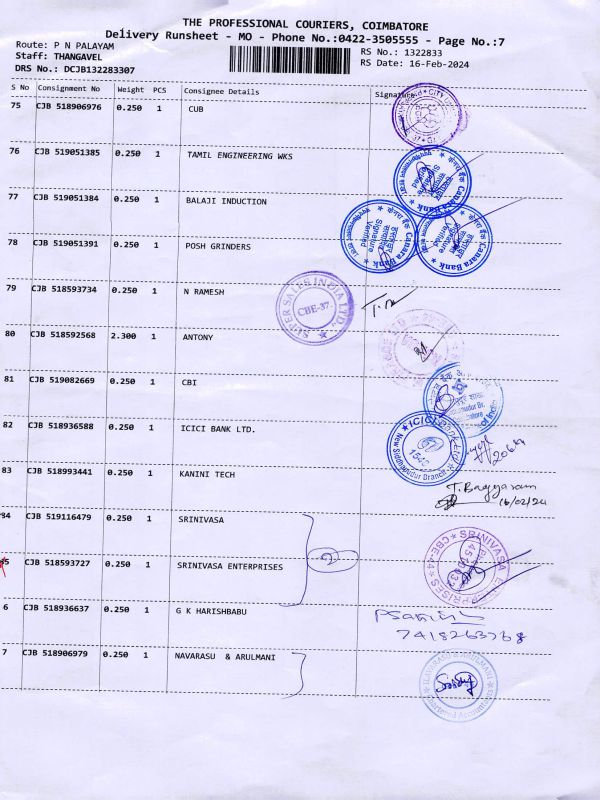 THE PROFESSIONAL COURIERS, COIMBATORE
Delivery Runsheet - MO - Phone No.:0422-3505555 - Page No.:7
Route: P N PALAYAM
RS No.: 1322833
Staff: THANGAVEL
RS Date: 16-Feb-2024
DRS No.: DCJB132283307
S No Consignment No Weight PCS Consignee Details Signature
75 CJB 518906976 0.250 1 CUB
76 CJB 519051385 0.250 1 TAMIL ENGINEERING WKS
Canara Bank
77 CJB 519051384 0.250 1 BALAJI INDUCTION
Canara Bank
Canara Bank
78 CJB 519051391 0.250 1 POSH GRINDERS
79 CJB 518593734 0.250 1 N RAMESH
SUPER SALES INDIA LTD.
CBE-37
80 CJB 518592568 2.300 1 ANTONY
81 CJB 519082669 0.250 1 CBI
82 CJB 518936588 0.250 1 ICICI BANK LTD.
ICICI Bank Ltd
New Siddhapudur Branch
83 CJB 518993441 0.250 1 KANINI TECH
16/02/24
84 CJB 519116479 0.250 1 SRINIVASA
2
85 CJB 518593727 0.250 1 SRINIVASA ENTERPRISES
SRINIVASA ENTERPRISES
6 CJB 518936637 0.250 1 G K HARISHBABU
7418263768
7 CJB 518906979 0.250 1 NAVARASU & ARULMANI
NAVARASU & ARULMANI
Chartered Accountants